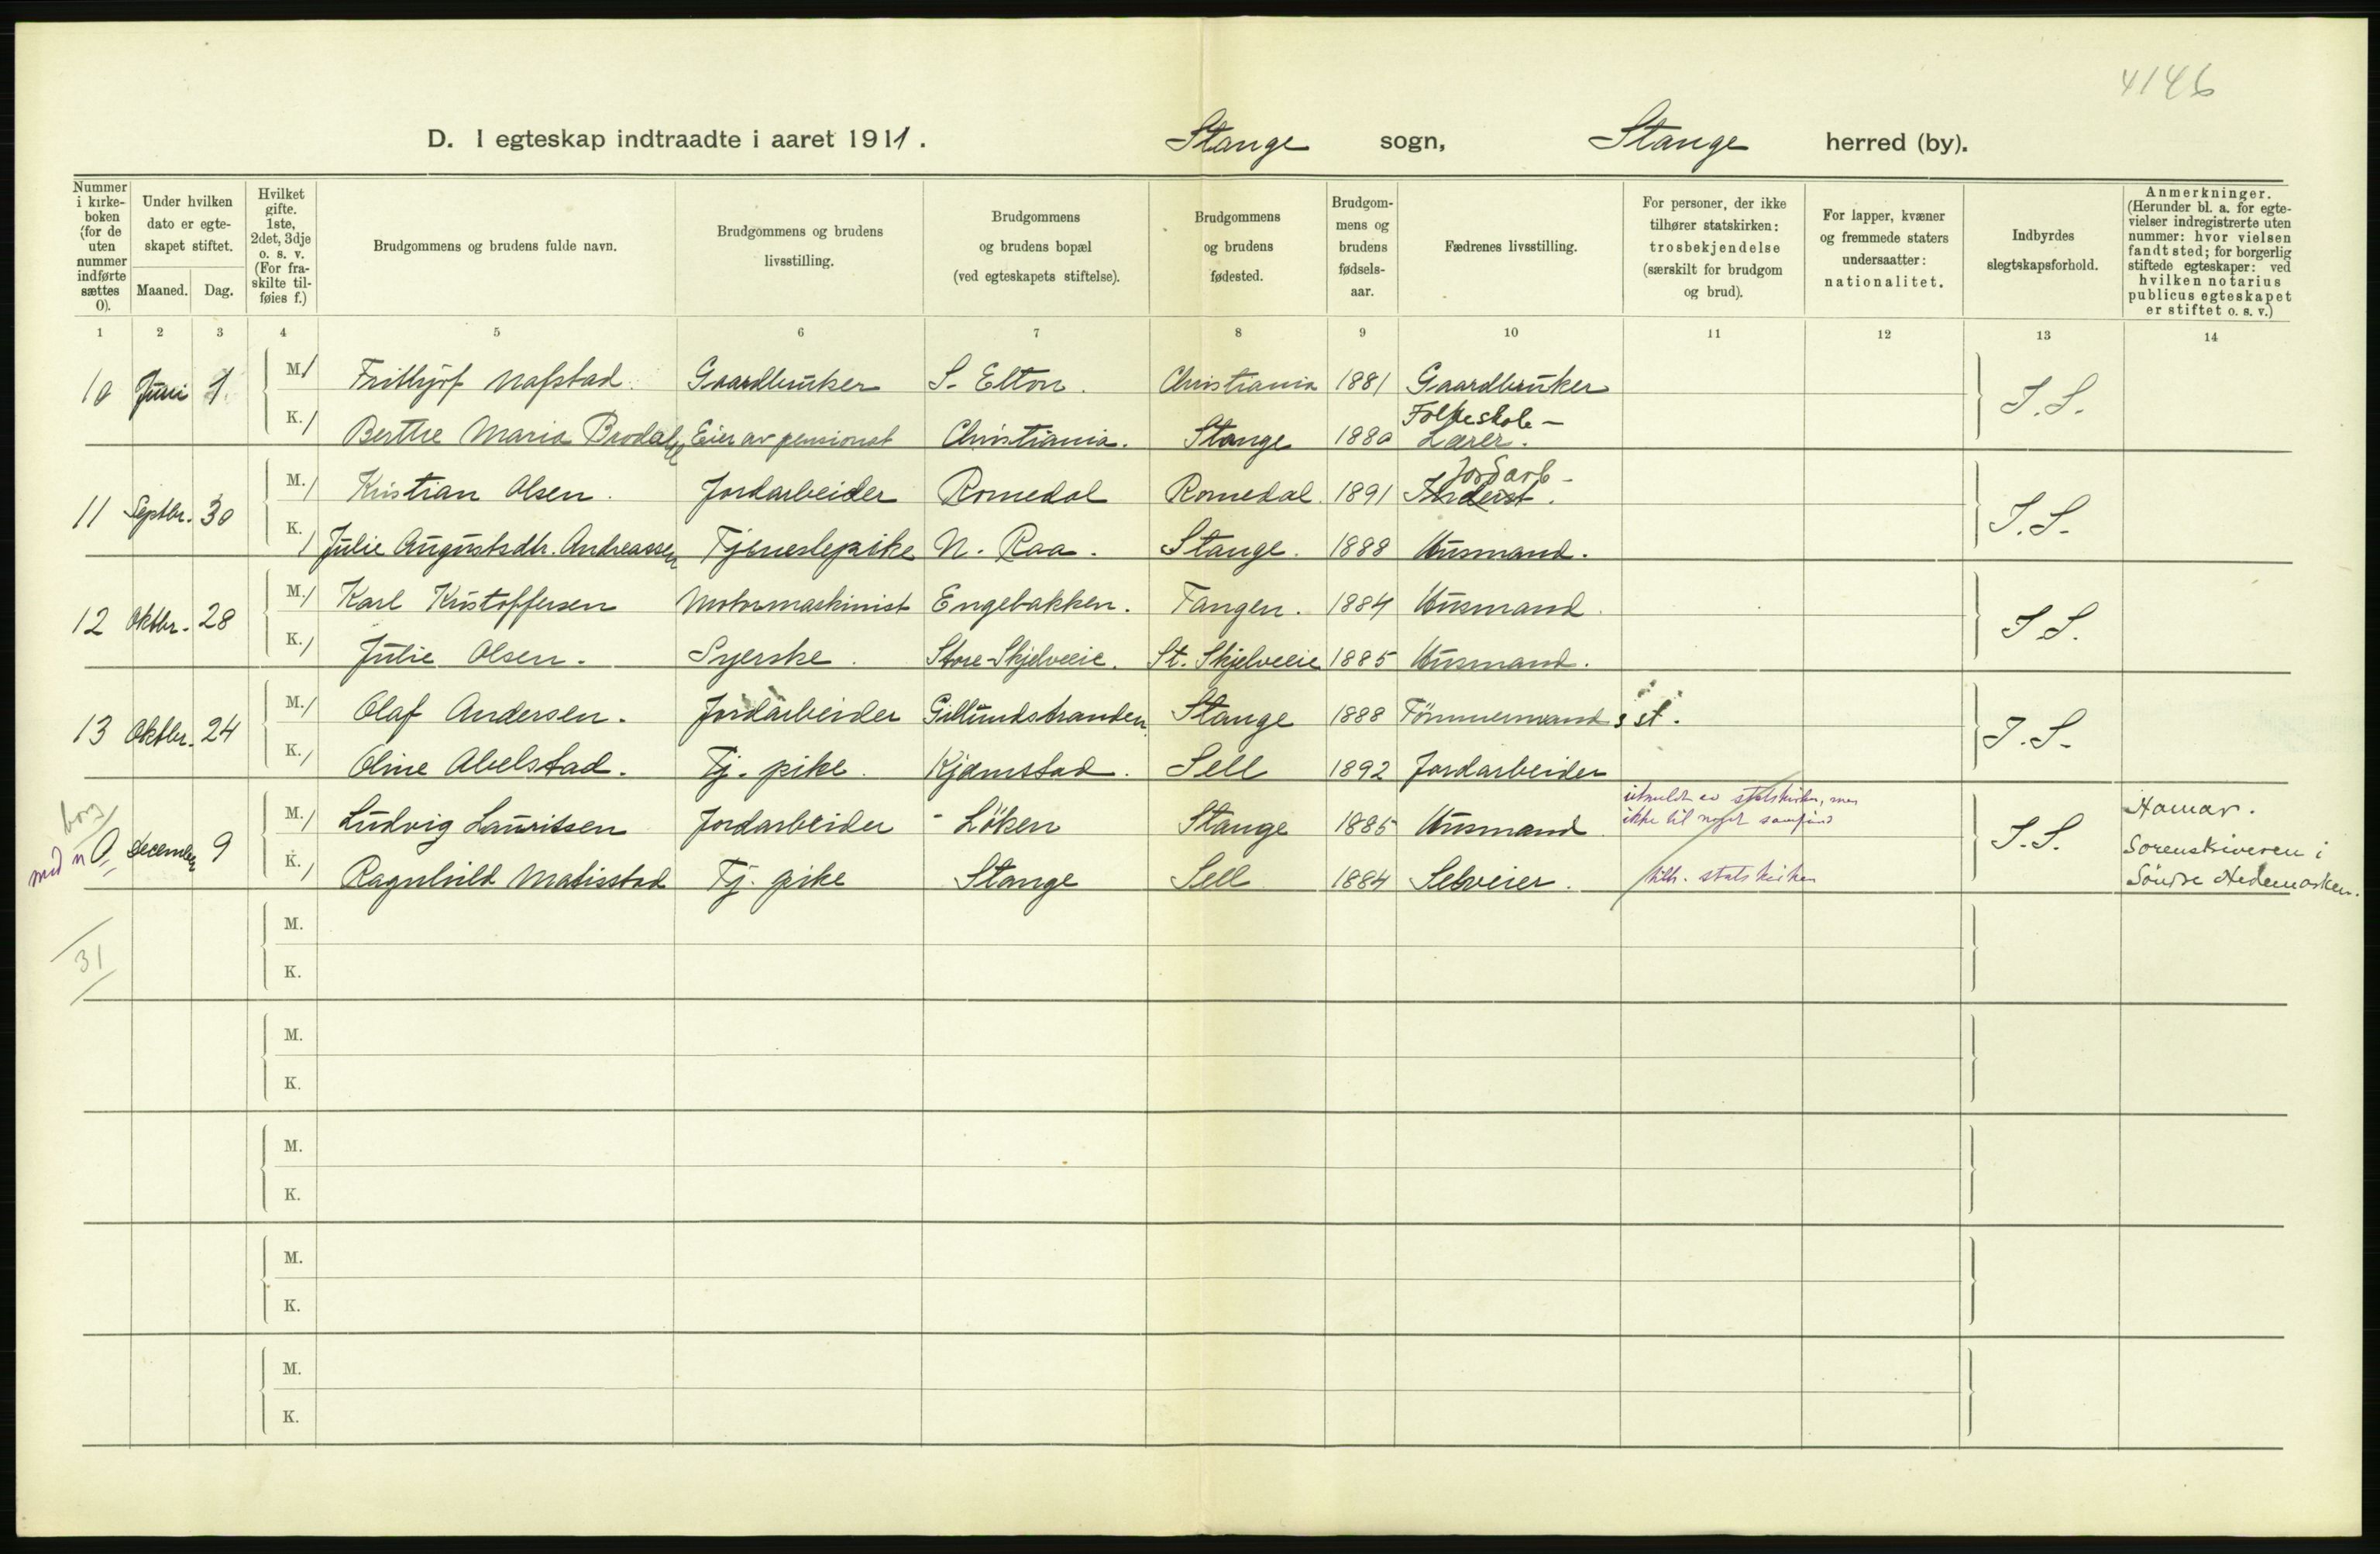 4146
D. I egteskap indtraadte i aaret 1911. Stange sogn, Stange herred (by).
Nummer i kirke-boken (for de uten nummer indførte sættes 0).
Under hvilken dato er egte-skapet stiftet.
Maaned. Dag.
Hvilket gifte. 1ste, 2det, 3dje o. s. v. (For fra-skilte til-føies f.)
Brudgommens og brudens fulde navn.
Brudgommens og brudens livsstilling.
Brudgommens og brudens bopæl (ved egteskapets stiftelse).
Brudgommens og brudens fødested.
Brudgom-mens og brudens fødsels-aar.
Fædrenes livsstilling.
For personer, der ikke tilhører statskirken: trosbekjendelse (særskilt for brudgom og brud).
For lapper, kvæner og fremmede staters undersaatter: nationalitet.
Indbyrdes slegtskapsforhold.
Anmerkninger. (Herunder bl. a. for egte-vielser indregistrerte uten nummer: hvor vielsen fandt sted; for borgerlig stiftede egteskaper: ved hvilken notarius publicus egteskapet er stiftet o. s. v.)
1 2 3 4 5 6 7 8 9 10 11 12 13 14
10 Juni 1. M. / Frithjof Nafstad. Gaardbruker S. Elton. Christiania 1881 Gaardbruker I.S.
Folkeskole-
K. / Berthe Maria Brodahl Eier av pensionat Christiania. Stange 1880 Lærer.
Jordarb-
11 Septbr. 30 M. / Kristian Olsen. Jordarbeider Romedal Romedal. 1891 I.S.
K. / Julie Augustsdtr. Andreassen Tjenestepike N. Raa. Stange. 1888 Husmand.
12 Oktbr. 28 M. / Karl Kristoffersen Motormaskinist Engebakken. Tangen. 1884 Husmand. I S.
K. / Julie Olsen. Syerske. Store-Skjelveeie. St. Skjelveeie 1885 Husmand.
13 Oktbr. 24 M. / Olaf Andersen. Jordarbeider Gillundstranden. Stange 1888 Tömmermand st. I.S.
K. / Oline Abelstad. Tj. pike. Kjemstad. Sell 1892 Jordarbeider
borg
med n 0 December 9 M. / Ludvig Lauritsen Jordarbeider - Löken Stange 1885 Husmand. utmeldt av statskirken, men
ikke til noget samfund I.S. Hamar.
K. / Ragnhild Matisstad Tj. pike Stange Sell 1884 Selveier. tilh. statskirken Sorenskriveren i
Söndre Hedemarken.
31
M.
K.
M.
K.
M.
K.
M.
K.
M.
K.